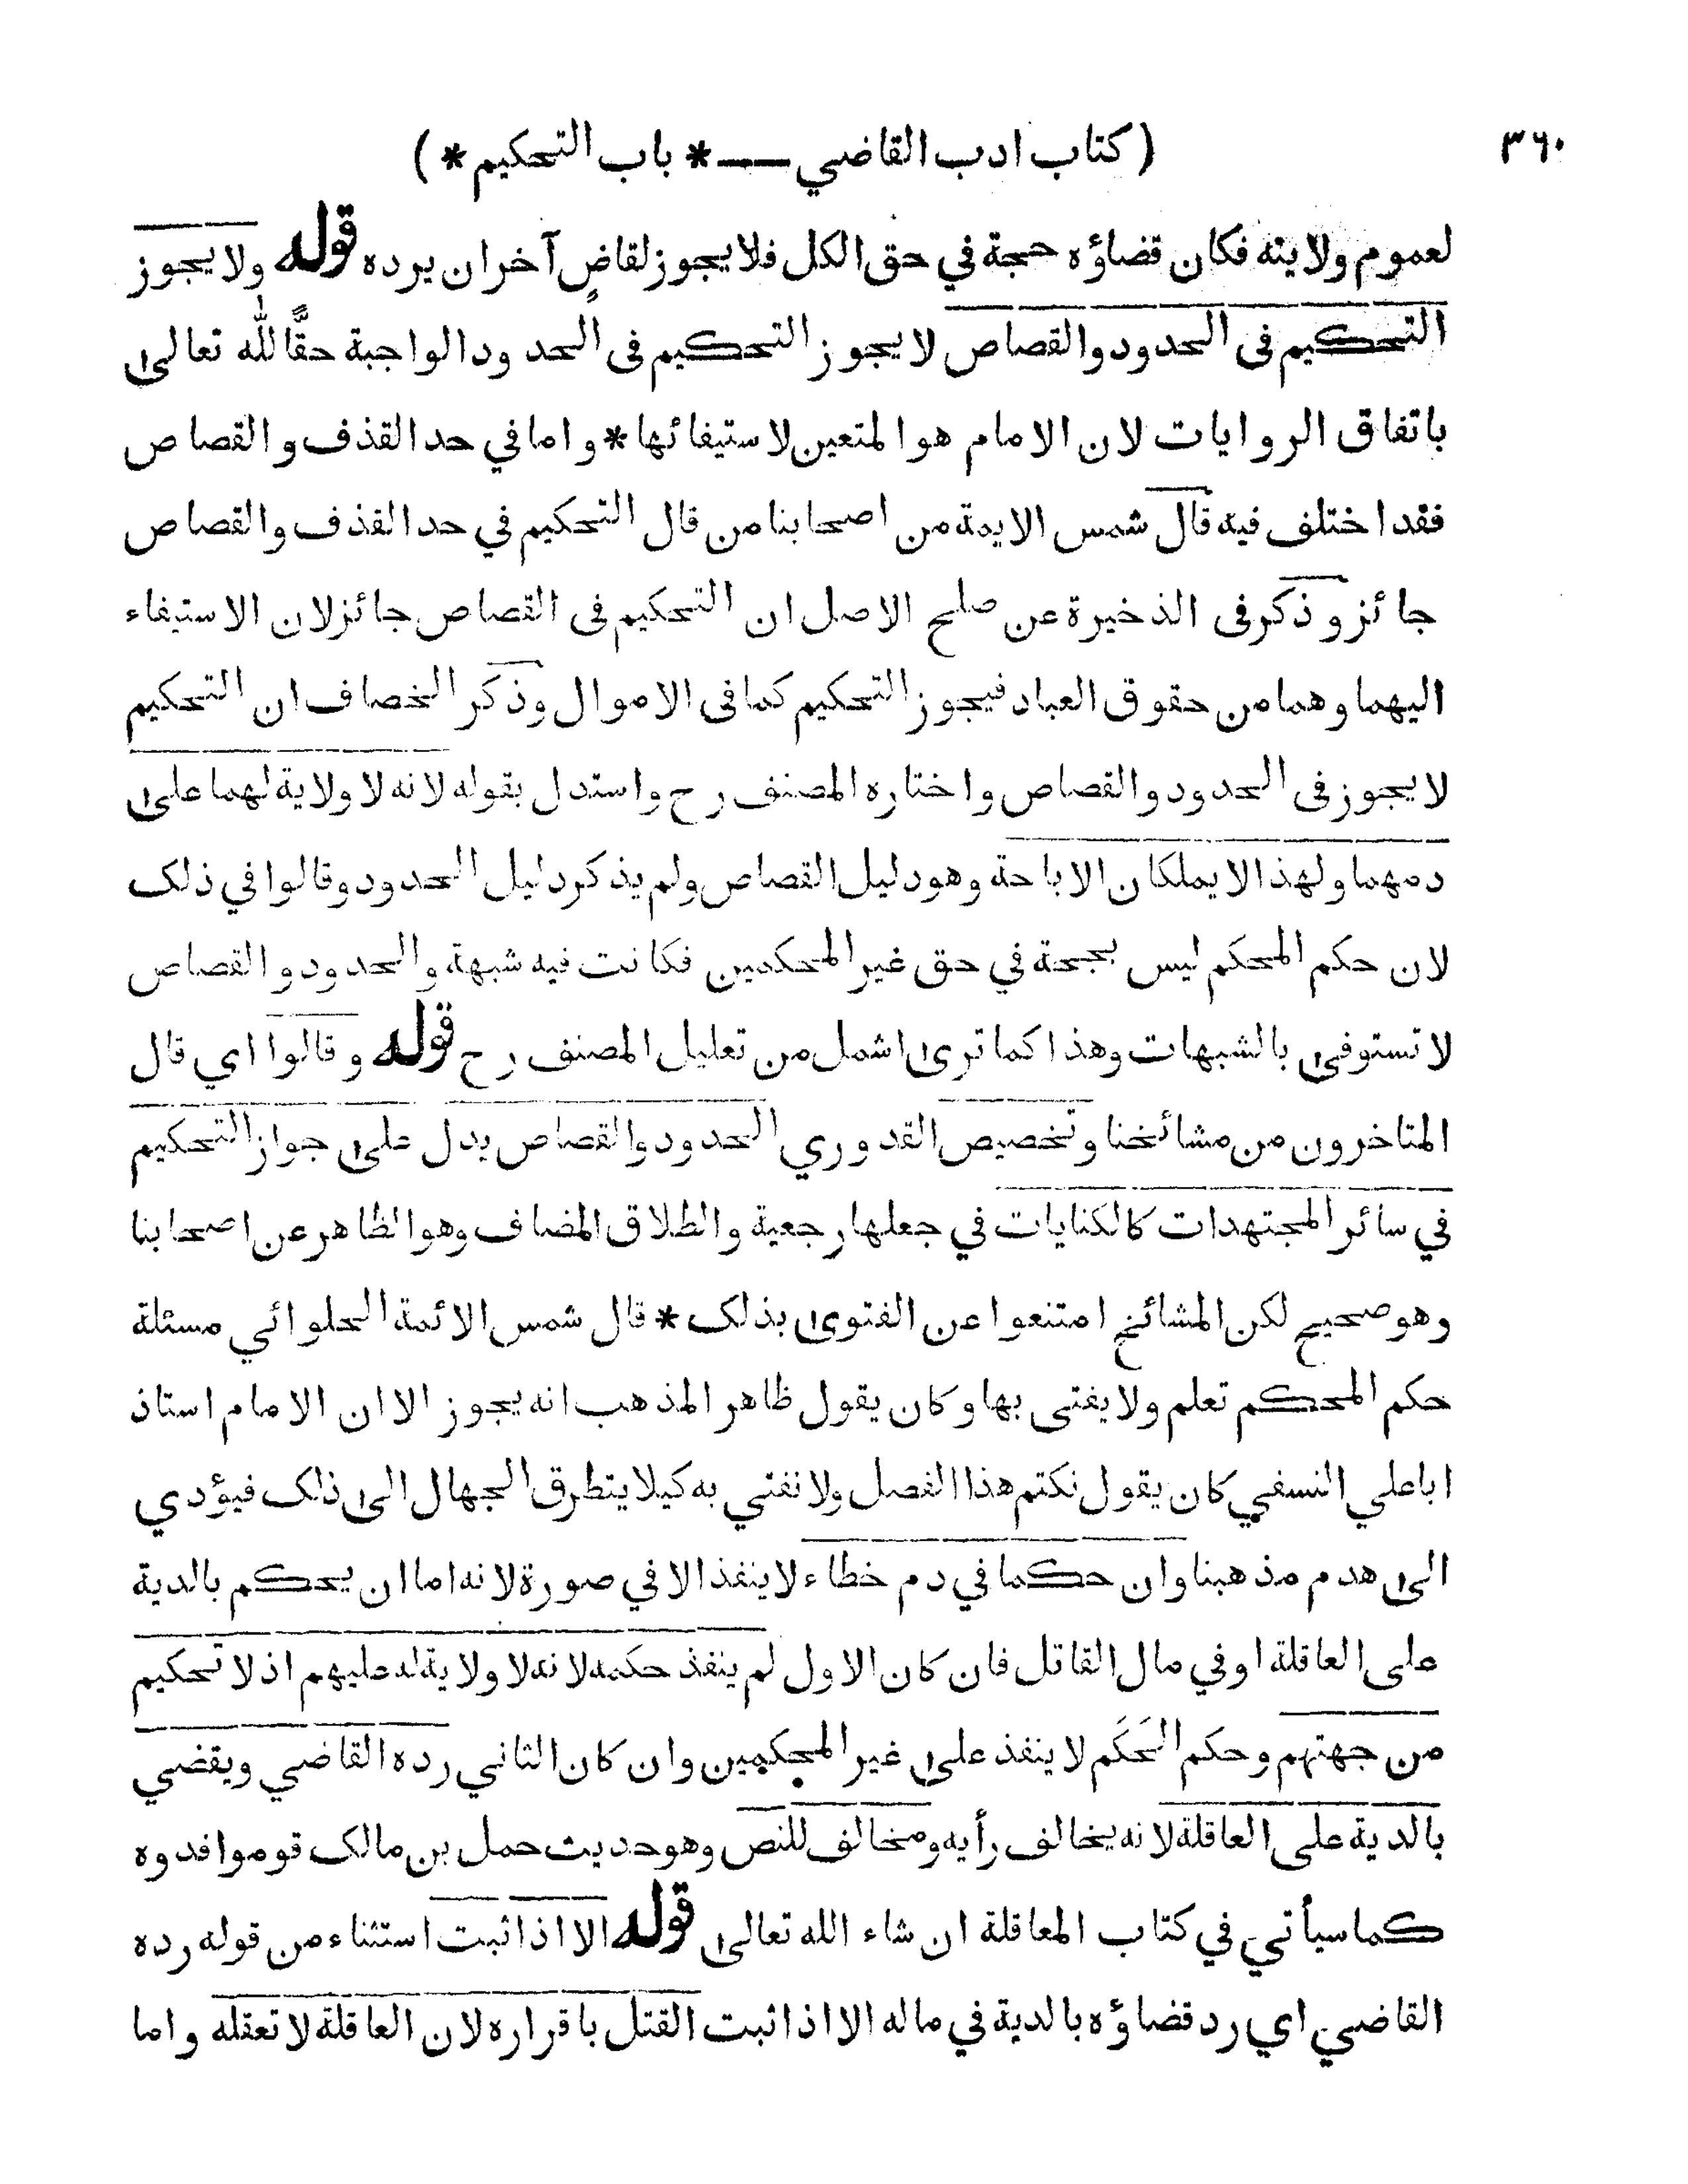 ٣٦٠
( كتاب ادب القاضي —— * باب التحكيم * )
لعموم ولايته فكان قضاؤه حجة في حق الكل فلا يجوز لقاضٍ آخر ان يرده قوله ولا يجوز
التحكيم فى الحدود والقصاص لا يجوز التحكيم فى الحدود الواجبة حقًّا لله تعالى
باتفاق الروايات لان الامام هو المتعين لاستيفائها * واما في حد القذف والقصاص
فقد اختلف فيه قال شمس الايمة من اصحابنا من قال التحكيم في حد القذف والقصاص
جائز وذكر فى الذخيرة عن صلح الاصل ان التحكيم فى القصاص جائز لان الاستيفاء
اليهما وهما من حقوق العباد فيجوز التحكيم كما فى الاموال وذكر الخصاف ان التحكيم
لا يجوز فى الحدود والقصاص واختاره المصنف رح واستدل بقوله لانه لا ولاية لهما على
دمهما ولهذا لا يملكان الاباحة وهو دليل القصاص ولم يذكر دليل الحدود وقالوا في ذلك
لان حكم المحكم ليس بحجة في حق غير المحكمين فكانت فيه شبهة والحدود والقصاص
لا تستوفى بالشبهات وهذا كما ترى اشمل من تعليل المصنف رح قوله وقالوا اي قال
المتاخرون من مشائخنا وتخصيص القدوري الحدود والقصاص يدل على جواز التحكيم
في سائر المجتهدات كالكنايات في جعلها رجعية والطلاق المضاف وهو الظاهر عن اصحابنا
وهو صحيح لكن المشائخ امتنعوا عن الفتوى بذلك * قال شمس الائمة الحلوائي مسئلة
حكم المحكم تعلم ولا يفتى بها وكان يقول ظاهر المذهب انه يجوز الا ان الامام استاذ
ابا علي النسفي كان يقول نكتم هذا الفصل ولا نفتي به كيلا يتطرق الجهال الى ذلك فيؤدي
الى هدم مذهبنا وان حكما في دم خطاء لا ينفذ الا في صورة لانه اما ان يحكم بالدية
على العاقلة او في مال القاتل فان كان الاول لم ينفذ حكمه لانه لا ولاية له عليهم اذ لا تحكيم
من جهتهم وحكم الحَكَم لا ينفذ على غير المحكمين وان كان الثاني رده القاضي ويقضي
بالدية على العاقلة لانه يخالف رأيه ومخالف للنص وهو حديث حمل بن مالك قوموا فدوه
كما سيأتي في كتاب المعاقلة ان شاء الله تعالى قوله الا اذا ثبت استثناء من قوله رده
القاضي اي رد قضاؤه بالدية في ماله الا اذا ثبت القتل باقراره لان العاقلة لا تعقله واما